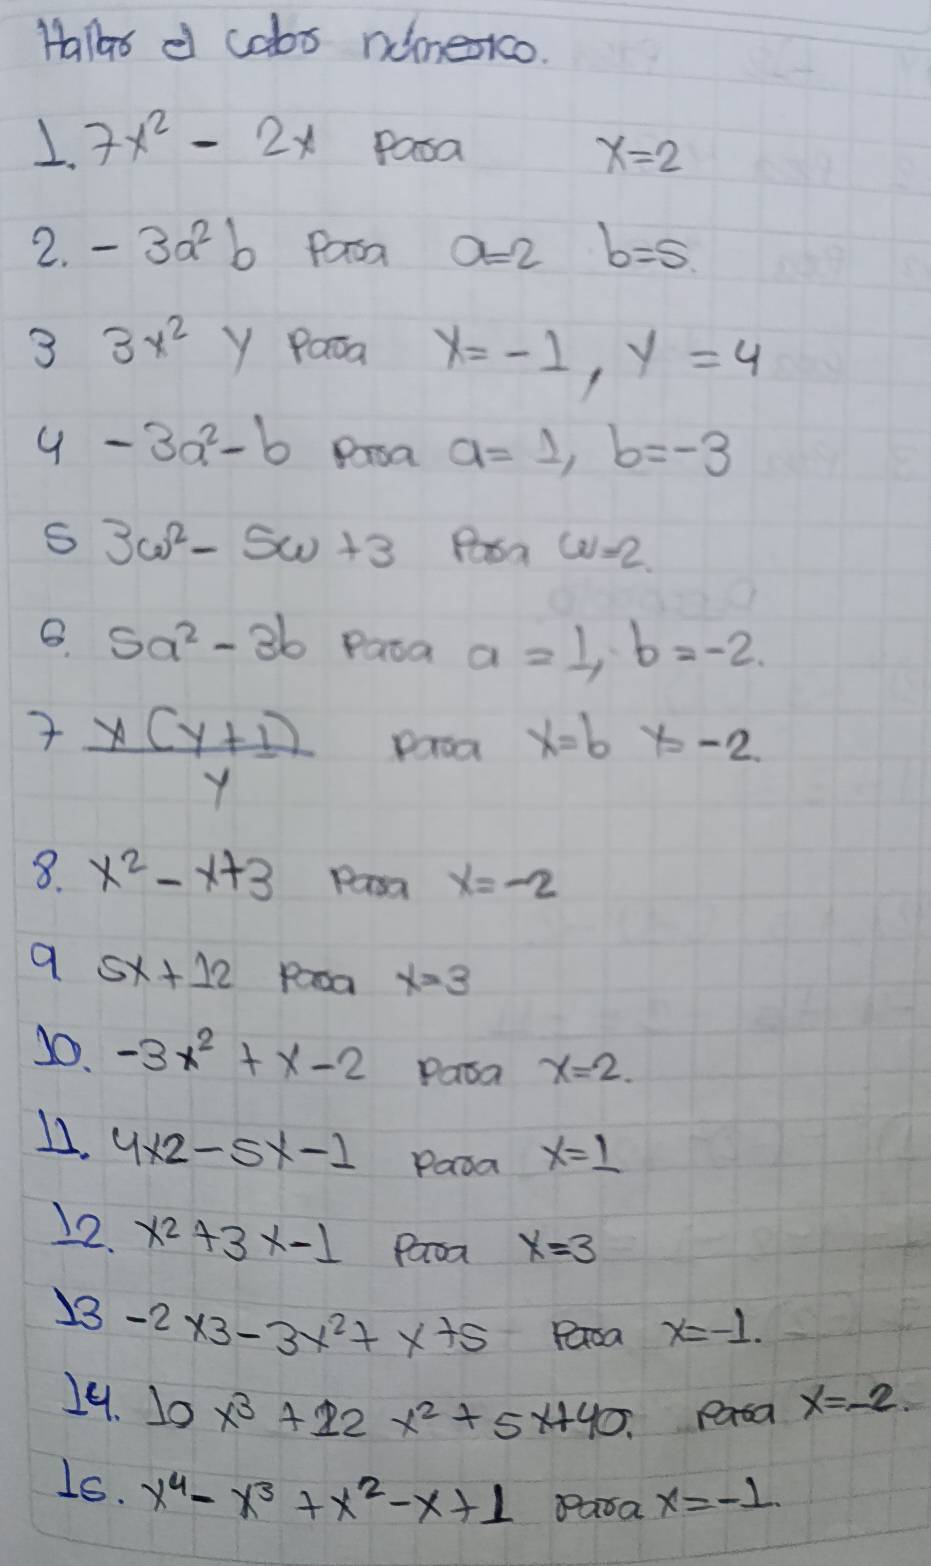 Hallar el valor númerico.
1. 7x² - 2x para x=2
2. -3a²b para a=2 b=5.
3 3x² y para x=-1, y=4
4 -3a²-b para a=1, b=-3
5 3w²- 5w+3 para w=2.
6. 5a²-3b para a=1, b=-2.
7 x(y+1)/y para x=6 y=-2.
8. x²-x+3 para x=-2
9 5x+12 para x=3
10. -3x²+x-2 para x=2.
11. 4x2-5x-1 para x=1
12. x²+3x-1 para x=3
13 -2x3-3x²+x+5 para x=-1.
14. 10x³+12x²+5x+40. para x=-2.
15. x⁴-x³+x²-x+1 para x=-1.